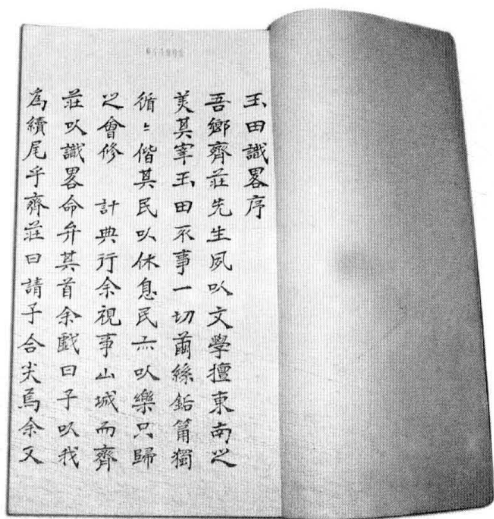 玉田識畧序
吾鄉齊莊先生夙以文學擅東南之
美其宰玉田不事一切繭絲鉛箭獨
循〻偕其民以休息民亦以樂只歸
之會修 計典行余視事山城而齊
莊以識畧命弁其首余戲曰子以我
為續尾乎齊莊曰請子合尖焉余又